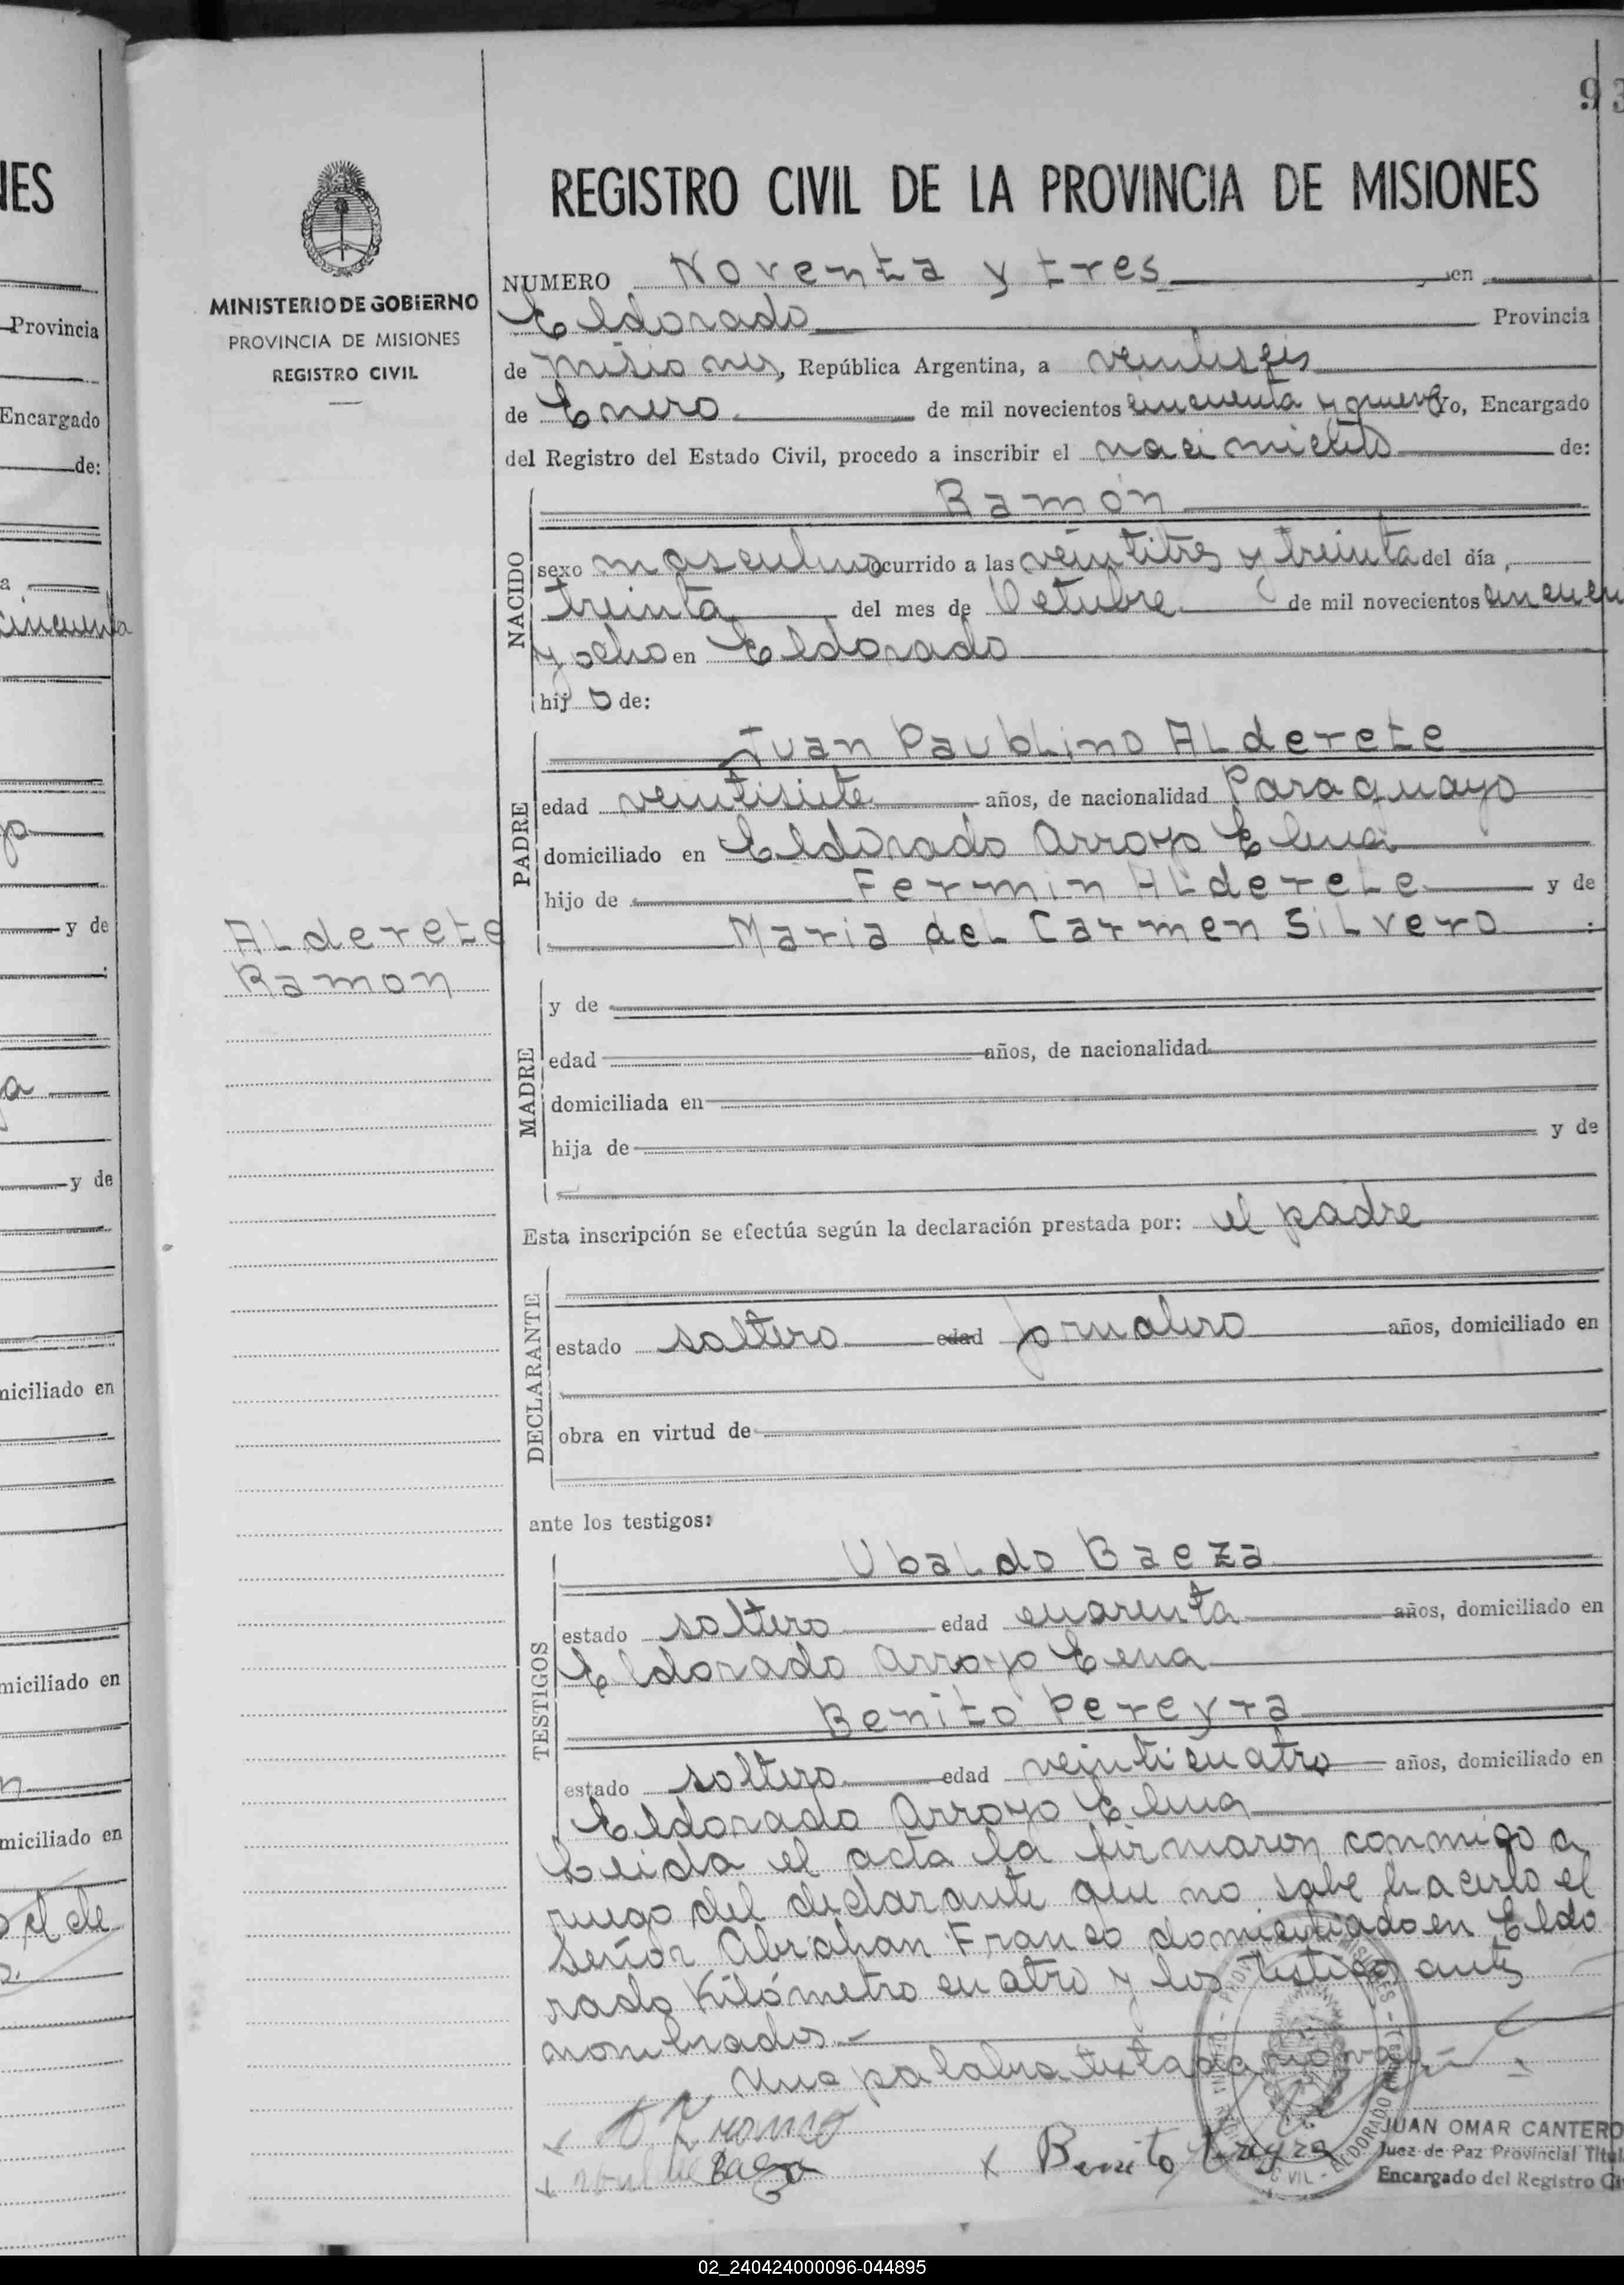 93
IES
REGISTRO CIVIL DE LA PROVINCIA DE MISIONES
MINISTERIO DE GOBIERNO
PROVINCIA DE MISIONES
REGISTRO CIVIL
Provincia
Encargado
de:
a
cincuenta
y de
a
y de
miciliado en
miciliado en
miciliado en
Alderete
Ramon
NUMERO Noventa y tres en
Eldorado Provincia
de Misiones, República Argentina, a veintiseis
de Enero de mil novecientos cincuenta y nueve Yo, Encargado
del Registro del Estado Civil, procedo a inscribir el nacimiento de:
NACIDO
Ramón
sexo masculino ocurrido a las veintitres y treinta del día
treinta del mes de Octubre de mil novecientos cincuen
y ocho en Eldorado
hijo de:
PADRE
Juan Paublino Alderete
edad veintisiete años, de nacionalidad Paraguayo
domiciliado en Eldorado Arroyo Elena
hijo de Fermin Alderete y de
Maria del Carmen Silvero :
MADRE
y de
edad años, de nacionalidad
domiciliada en
hija de y de
Esta inscripción se efectúa según la declaración prestada por: el padre
DECLARANTE
estado soltero edad jornalero años, domiciliado en
obra en virtud de
ante los testigos:
TESTIGOS
Ubaldo Baeza
estado soltero edad cuarenta años, domiciliado en
Eldorado Arroyo Elena
Benito Pereyra
estado soltero edad veinticuatro años, domiciliado en
Eldorado Arroyo Elena
Leida el acta la firmaron conmigo a
ruego del declarante que no sabe hacerlo el
Señor Abrahan Franco domiciliado en Eldo
rado Kilómetro cuatro y los testigos antes
nombrados.-
Una palabra testada no vale
A Franco
Baeza
x Benito Pereyra
ELDORADO
JUAN OMAR CANTERO
Juez de Paz Provincial Titul
Encargado del Registro Ci
02_240424000096-044895